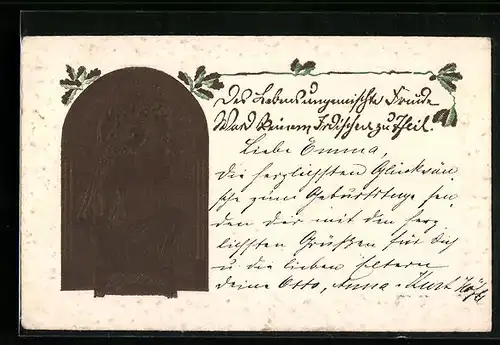 Des Lebens ungemischte Freude
Ward keinem Irdischen zu Theil.
Liebe Emma,
Die herzlichsten Glückwün-
sche zum Geburtstage sen-
den dir mit den herz
lichsten Grüßen für Dich
u die lieben Eltern
deine Otto, Anna + Kurt